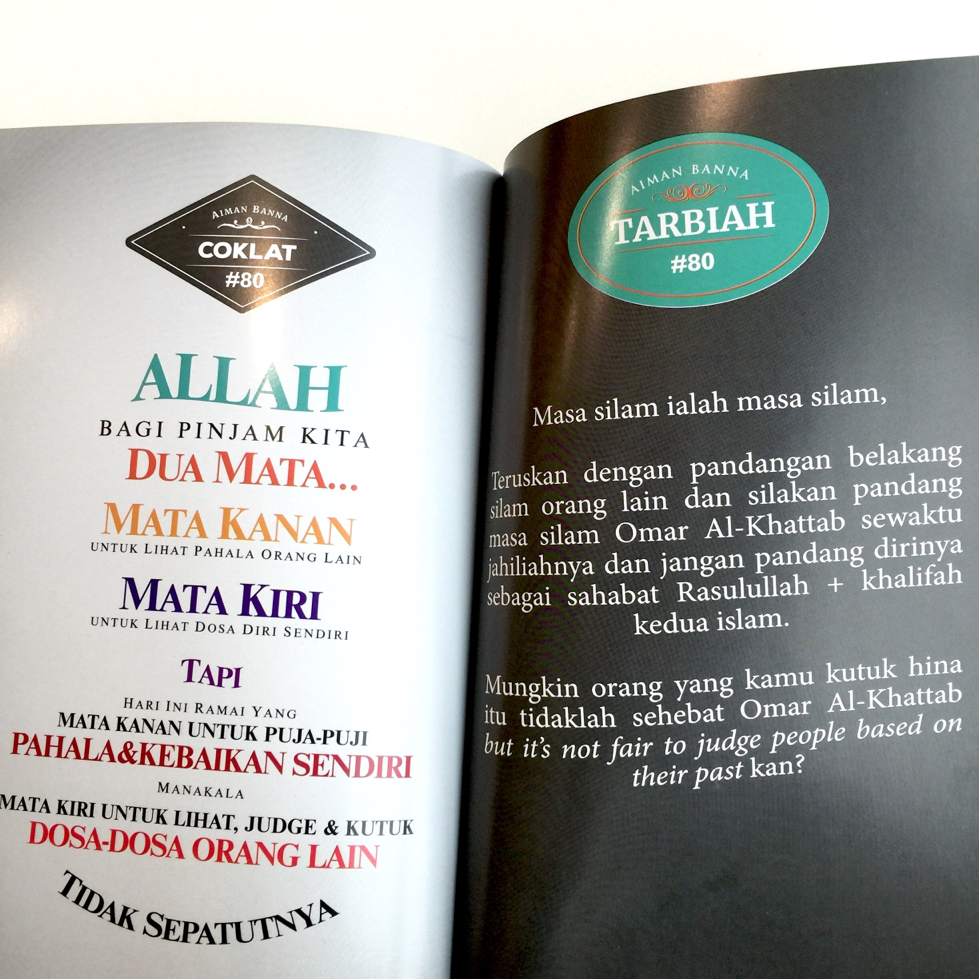 AIMAN BANNA
COKLAT
#80
ALLAH
BAGI PINJAM KITA
DUA MATA...
MATA KANAN
UNTUK LIHAT PAHALA ORANG LAIN
MATA KIRI
UNTUK LIHAT DOSA DIRI SENDIRI
TAPI
HARI INI RAMAI YANG
MATA KANAN UNTUK PUJA-PUJI
PAHALA&KEBAIKAN SENDIRI
MANAKALA
MATA KIRI UNTUK LIHAT, JUDGE & KUTUK
DOSA-DOSA ORANG LAIN
TIDAK SEPATUTNYA
AIMAN BANNA
TARBIAH
#80
Masa silam ialah masa silam,
Teruskan dengan pandangan belakang
silam orang lain dan silakan pandang
masa silam Omar Al-Khattab sewaktu
jahiliahnya dan jangan pandang dirinya
sebagai sahabat Rasulullah + khalifah
kedua islam.
Mungkin orang yang kamu kutuk hina
itu tidaklah sehebat Omar Al-Khattab
but it's not fair to judge people based on
their past kan?